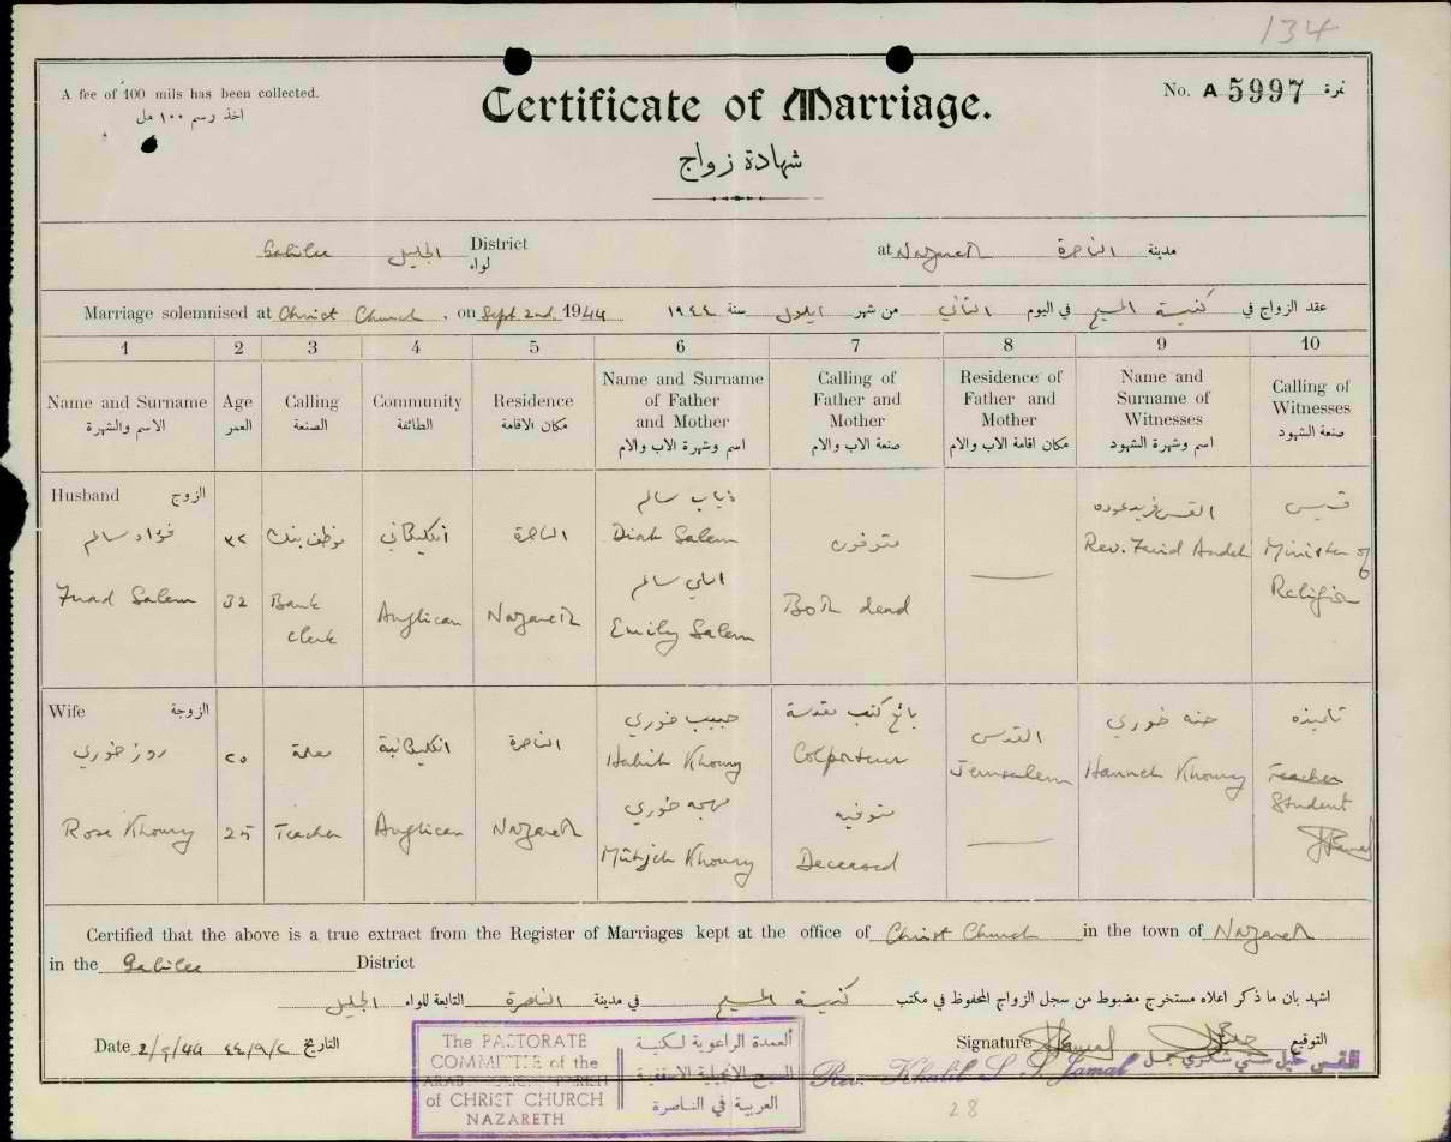 134
A fee of 100 mils has been collected.
اخذ رسم ١٠٠ مل
Certificate of Marriage.
شهادة زواج
No. A 5997 نمرة
Galilee الجليل District لواء
at Nazareth الناصرة مدينة
Marriage solemnised at Christ Church, on Sept. 2nd. 1944
عقد الزواج في كنيسة المسيح في اليوم الثاني من شهر ايلول سنة ١٩٤٤
1 2 3 4 5 6 7 8 9 10
Name and Surname
الاسم والشهرة
Age
العمر
Calling
الصنعة
Community
الطائفة
Residence
مكان الاقامة
Name and Surname
of Father
and Mother
اسم وشهرة الاب والام
Calling of
Father and
Mother
صنعة الاب والام
Residence of
Father and
Mother
مكان اقامة الاب والام
Name and
Surname of
Witnesses
اسم وشهرة الشهود
Calling of
Witnesses
صنعة الشهود
Husband الزوج
فؤاد سالم
Fuad Salem
٣٢
32
موظف بنك
Bank
Clerk
انكليكاني
Anglican
الناصرة
Nazareth
ذياب سالم
Diab Salem
املي سالم
Emily Salem
متوفون
Both dead
القس فريد عوده
Rev. Farid Audeh
قسيس
Minister of
Religion
Wife الزوجة
روز خوري
Rose Khoury
٢٥
25
معلمة
Teacher
انكليكانية
Anglican
الناصرة
Nazareth
حبيب خوري
Habib Khoury
مهجه خوري
Muhjeh Khoury
بائع كتب مقدسة
Colporteur
متوفيه
Deceased
القدس
Jerusalem
حنه خوري
Hanneh Khoury
تلميذه
Teacher
Student
Certified that the above is a true extract from the Register of Marriages kept at the office of Christ Church in the town of Nazareth
in the Galilee District
اشهد بان ما ذكر اعلاه مستخرج مضبوط من سجل الزواج المحفوظ في مكتب كنيسة المسيح في مدينة الناصرة التابعة للواء الجليل
Date 2/9/44 ٤٤/٩/٢ التاريخ
Signature التوقيع
Rev. Khalil S. Jamal
The PASTORATE
COMMITTEE of the
of CHRIST CHURCH
NAZARETH
العمدة الراعوية لكنيسة
المسيح الانجيلية الاسقفية
العربية في الناصرة
28